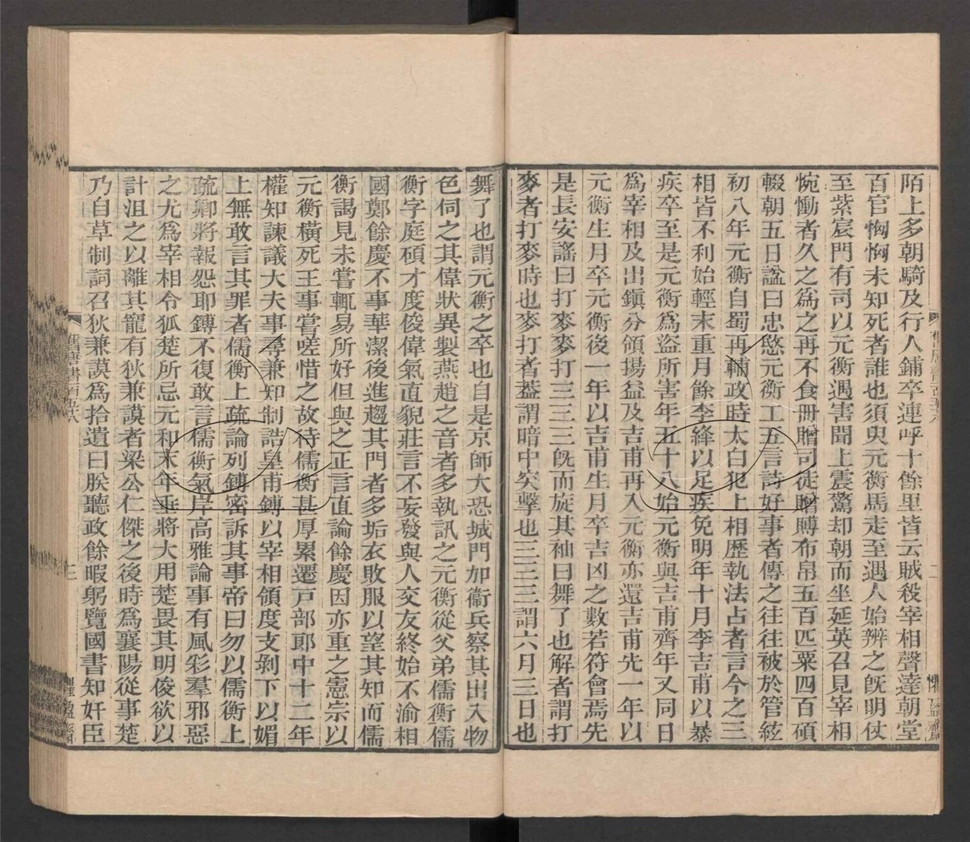 陌上多朝騎及行人鋪卒連呼十餘里皆云賊殺宰相聲達朝堂
百官恟恟未知死者誰也須臾元衡馬走至遇人始辨之旣明仗
至紫宸門有司以元衡遇害聞上震驚却朝而坐延英召見宰相
惋慟者久之爲之再不食冊贈司徒贈賻布帛五百匹粟四百碩
輟朝五日諡曰忠愍元衡工五言詩好事者傳之往往被於管絃
初八年元衡自蜀再輔政時太白犯上相歷執法占者言今之三
相皆不利始輕末重月餘李絳以足疾免明年十月李吉甫以暴
疾卒至是元衡爲盜所害年五十八始元衡與吉甫齊年又同日
爲宰相及出鎮分領揚益及吉甫再入元衡亦還吉甫先一年以
元衡生月卒元衡後一年以吉甫生月卒吉凶之數若符會焉先
是長安謠曰打麥麥打三三三旣而旋其袖曰舞了也解者謂打
麥者打麥時也麥打者蓋謂暗中突擊也三三三謂六月三日也
舞了也謂元衡之卒也自是京師大恐城門加衞兵察其出入物
色伺之其偉狀異製燕趙之音者多執訊之元衡從父弟儒衡儒
衡字庭碩才度俊偉氣直貌莊言不妄發與人交友終始不渝相
國鄭餘慶不事華潔後進趨其門者多垢衣敗服以望其知而儒
衡謁見未嘗輒易所好但與之正言直論餘慶因亦重之憲宗以
元衡橫死王事嘗嗟惜之故待儒衡甚厚累遷戸部郎中十二年
權知諫議大夫事尋兼知制誥皇甫鎛以宰相領度支剝下以媚
上無敢言其罪者儒衡上疏論列鎛密訴其事帝曰勿以儒衡上
疏卿將報怨耶鎛不復敢言儒衡氣岸高雅論事有風彩羣邪惡
之尤爲宰相令狐楚所忌元和末年垂將大用楚畏其明俊欲以
計沮之以離其寵有狄兼謨者梁公仁傑之後時爲襄陽從事楚
乃自草制詞召狄兼謨爲拾遺曰朕聽政餘暇躬覽國書知奸臣